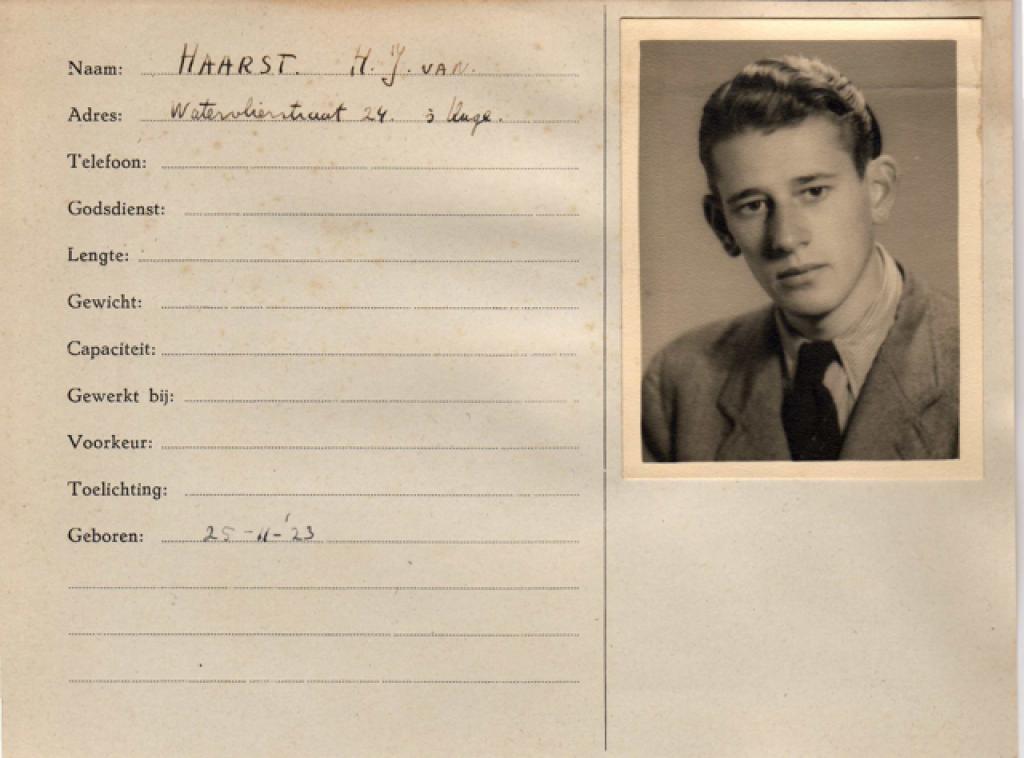 Naam: HAARST. H. J. VAN.
Adres: Watervlierstraat 24. 's Hage.
Telefoon:
Godsdienst:
Lengte:
Gewicht:
Capaciteit:
Gewerkt bij:
Voorkeur:
Toelichting:
Geboren: 25-11-'23